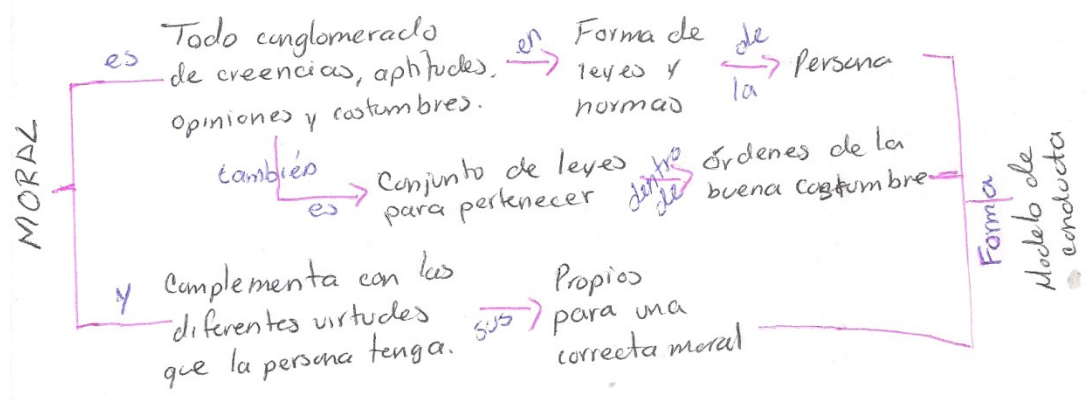 MORAL
es
Todo conglomerado
de creencias, aptitudes,
opiniones y costumbres.
en
Forma de
leyes y
normas
de
la
Persona
también
es
Conjunto de leyes
para pertenecer
dentro
de
órdenes de la
buena costumbre
y
Complementa con las
diferentes virtudes
que la persona tenga.
sus
Propios
para una
correcta moral
Forma
Modelo de
conducta